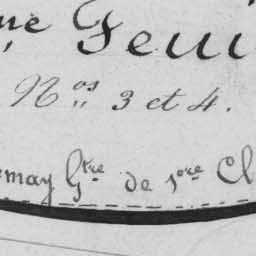 me Feui
Nos 3 et 4.
emay Gtre de 1ere Cl